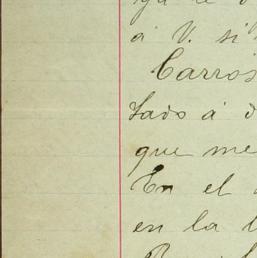 á V. si
Carros
tado á d
que me
En el
en la l